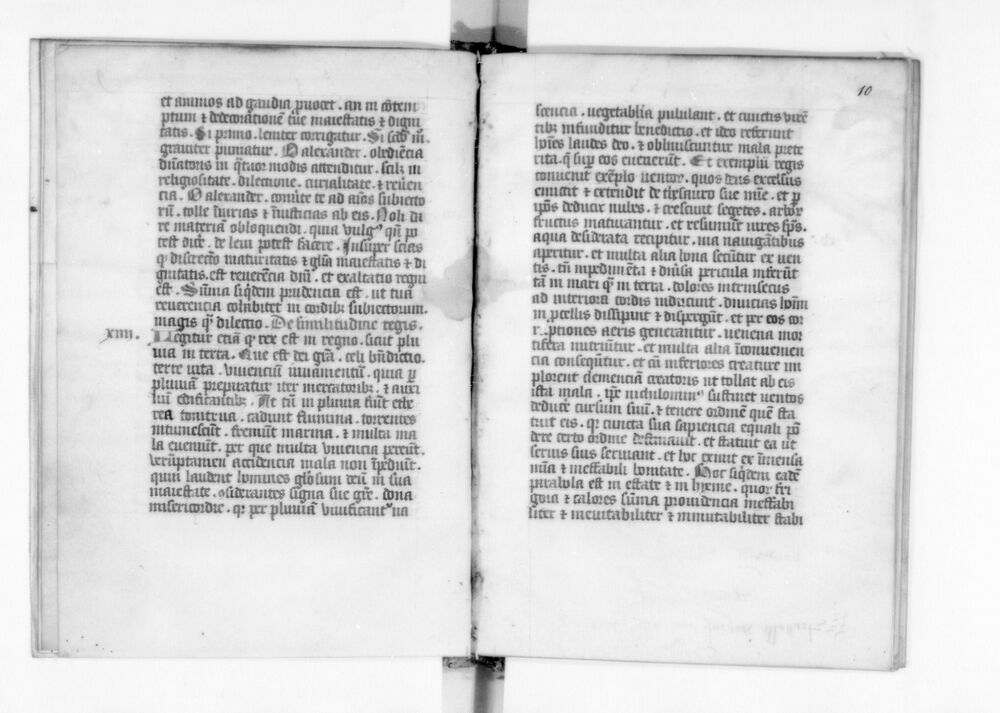 et animos ad gaudia ꝓuocet . an in cōtem
ptum ⁊ dedecorationē tue maiestatis ⁊ digni
tatis . Si primo . leuiter corrigatur . Si scdō m̊.
grauiter puniatur . O alexander . obediēcia
dn̄atoris in qͣtuor modis attenditur . scilꝫ in
religiositate . dilectione . curialitate . ⁊ reuēn
cia . O alexander . cōuīte te ad aīos subiecto
rū . tolle īiurias ⁊ īniusticias ab eis . Noli da
re materiā obloquendi . quia vulgꝰ qn̄ po
test dicē . de leui potest facere . Insuper scias
ꝙ discrecō maturitatis ⁊ gl̄ia maiestatis ⁊ di
gnitatis . est reuerēcia dn̄i . et exaltatio regni
est . Sūma siꝗdem prudencia est . ut tua
reuerencia cohabitet in cordibꝫ subiectorum .
magis qͣꝫ dilectio . De similitudine regis .
xiiii .
Legitur eciā ꝙ rex est in regno . sicut plu
uia in terra . Que est dei grā . celi bn̄dictio .
terre uita . viuenciū iuuamentū . quia ꝑ
pluuiā prepatatur iter mercatoribꝫ . ⁊ auxi
liū edificantibꝫ . At tn̄ in pluuia fiūt ethe
rea tonitrua . cadunt flumina . torrentes
intumescūt . fremūt marina . ⁊ multa ma
la eueniūt . per que multa viuencia pereūt .
veruꝑtamen accidencia mala non īpediūt .
quin laudent homines gl̄osum deū in sua
maiestate . ꝯsiderantes signa sue grē . dona
misericordie . qꝛ per pluuiā viuificantᷣ na
10
scencia . uegetabl̄ia pululant . et cunctis virē
tibꝫ infunditur benedictio . et ideo referunt
hoīes laudes deo . ⁊ obliuiscuntur mala prete
rita . q̄ suꝑ eos euenerūt . Et exemplū regis
conuenit exēplo uentoꝝ . quos deus excelsus
emittit ⁊ extendit de thesauro sue mīe . et ꝑ
ipōs deducit nubes . ⁊ crescunt segetes . arboꝝ
fructus maturantur . et resumūt uires sp̄s .
aqua desiderata recipitur . uia nauigātibus
aperitur . et multa alia bona secūtur ex uen
tis . tn̄ inpedimēta ⁊ diūsa pericula inferūt
tā in mari qͣꝫ in terra . dolores intrinsecus
ad interiora cordis inducunt . diuicias hoīm
in ꝓcellis dissipūt ⁊ dispergūt . et per eos cor
ruptiones aeris generantur . uenena mor
tifera nutriūtur . et multa alia īconuenien
cia consequūtur . et cū inferiores creature im
plorent clemenciā creatoris ut tollat ab eis
ista mala . ip̄e nichilominꝰ sustinet uentos
deducē cursum suū . ⁊ tenere ordinē quē sta
tuit eis . qꝛ cuncta sua sapiencia equali pō
dere certo ordine destinauit . et statuit ea ut
seruis suis seruiant . et hoc exiuit ex īmensa
mīa ⁊ ineffabili bonitate . Hoc siꝗdem eadē
parabola est in estate ⁊ in hyeme . quoꝝ fri
gora ⁊ calores sūma prouidencia ineffabi
liter ⁊ ineuitabiliter ⁊ inmutabiliter stabi